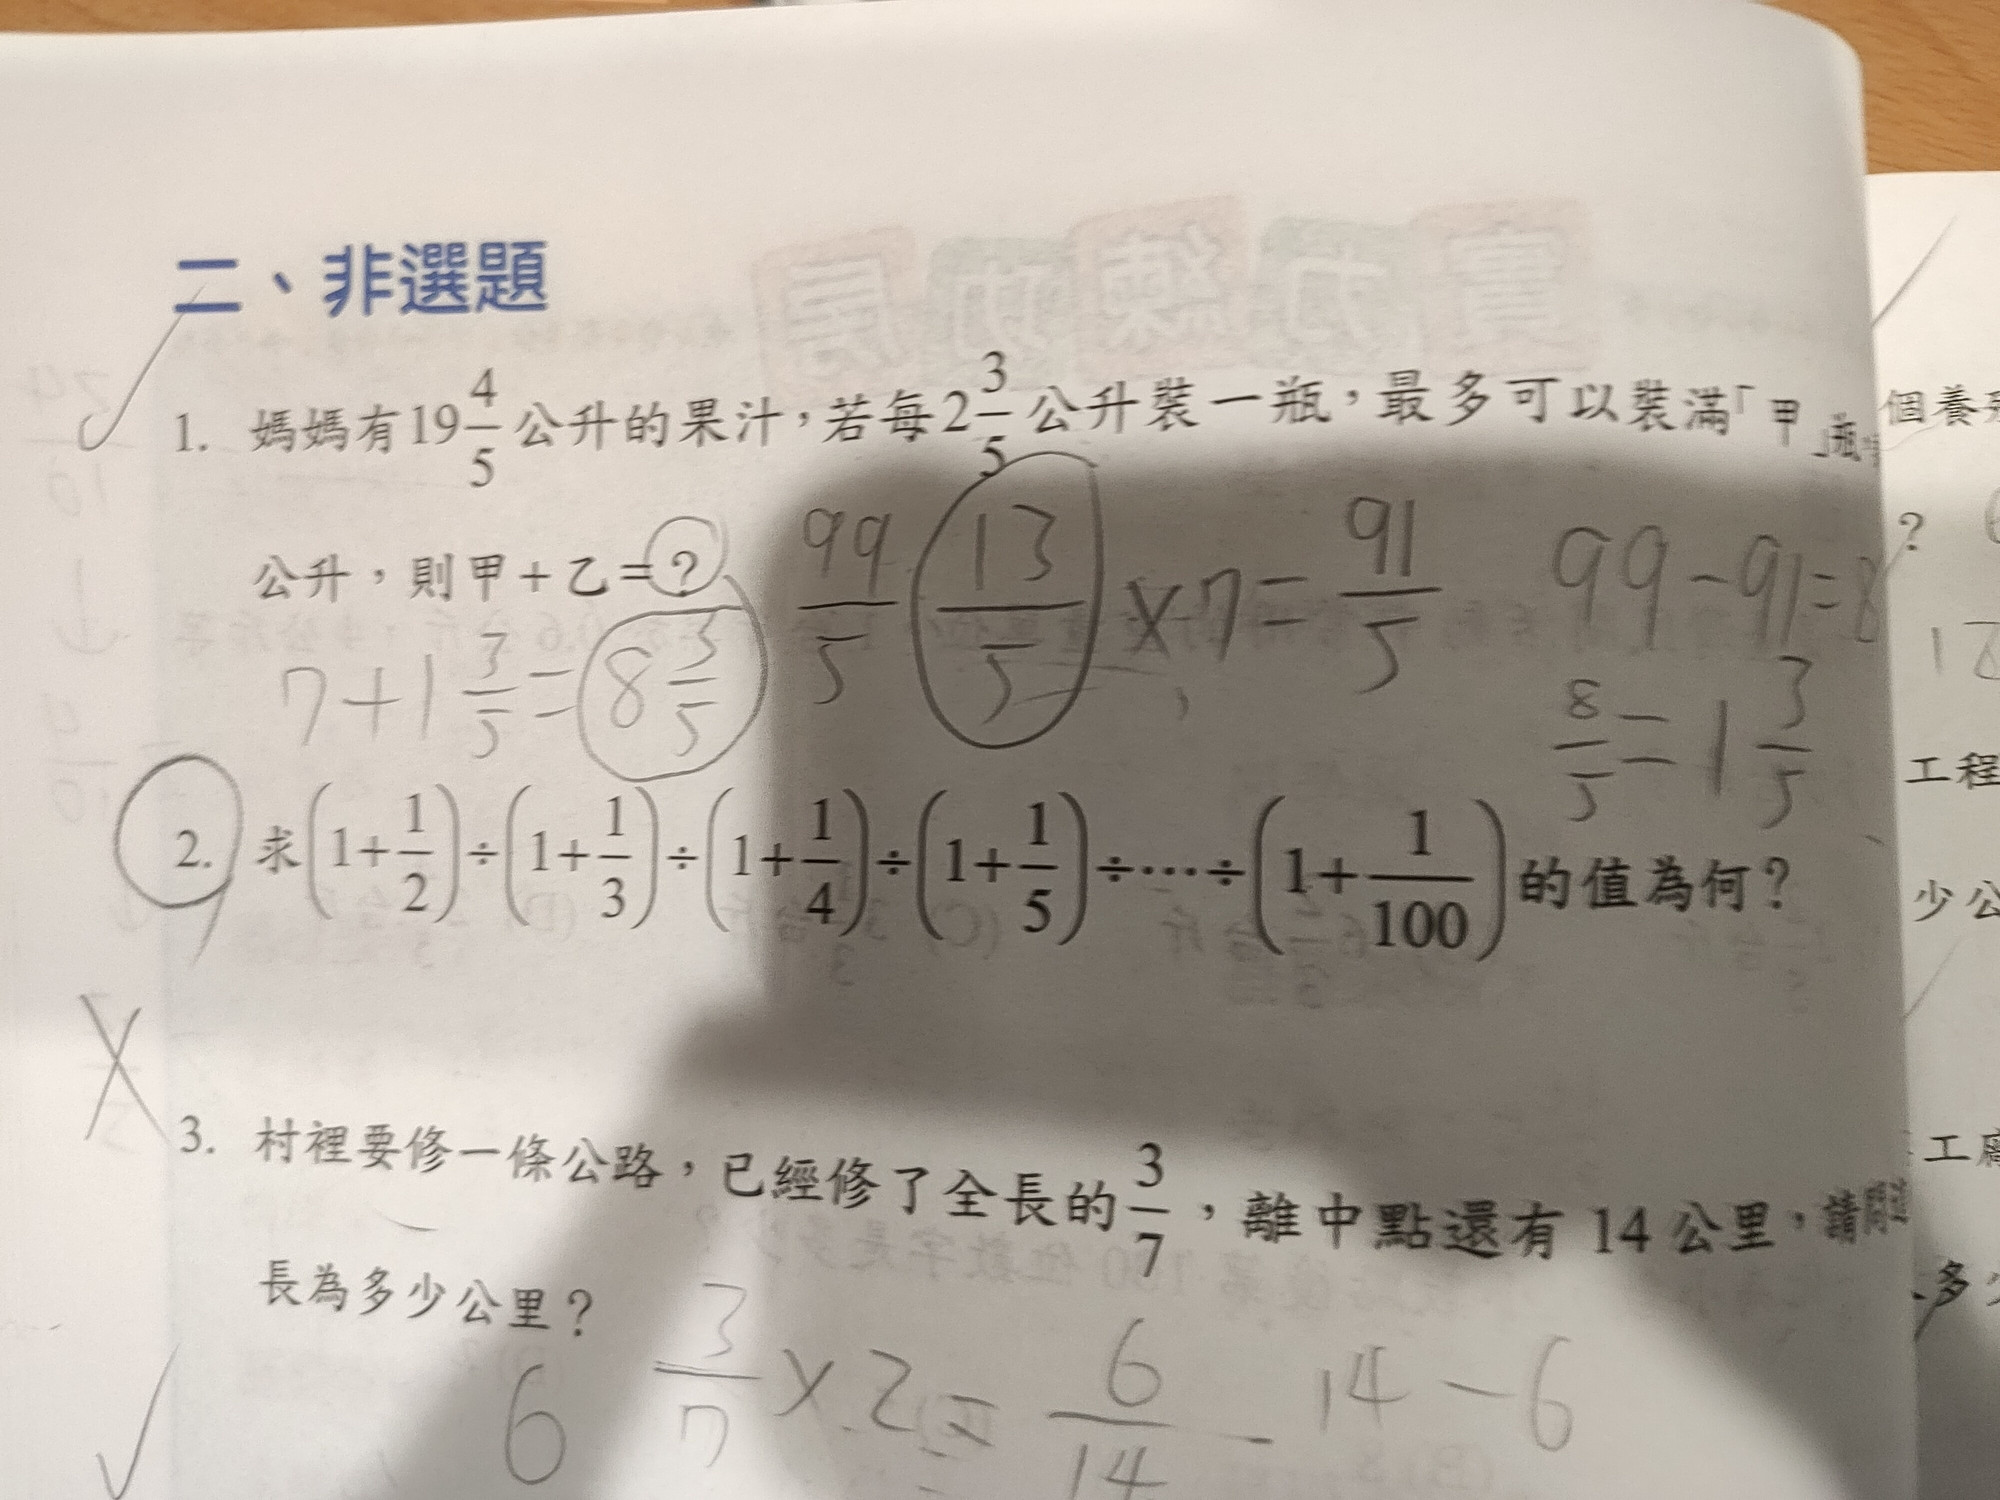 二、非選題
1. 媽媽有19 4/5 公升的果汁，若每2 3/5 公升裝一瓶，最多可以裝滿「甲」瓶
公升，則甲＋乙＝？
99/5 13/5 ×7= 91/5 99-91=8
7+1 3/5 = 8 3/5
8/5 = 1 3/5
2. 求(1+1/2)÷(1+1/3)÷(1+1/4)÷(1+1/5)÷…÷(1+1/100)的值為何？
3. 村裡要修一條公路，已經修了全長的3/7，離中點還有 14 公里，請問
長為多少公里？
6 3/7 ×2 = 6/14 14-6
個養
?
18
工程
少公
工廠
多少